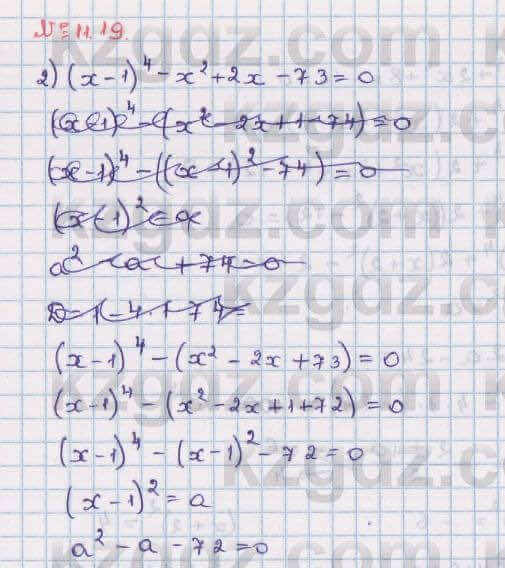 № 11.19.
2) (x-1)⁴ - x² + 2x - 73 = 0
(x-1)⁴ - (x² - 2x + 1 - 74) = 0
(x-1)⁴ - ((x-1)² - 74) = 0
(x-1)² = a
a² - a + 74 = 0
D = 1 - 4·1·74 =
(x-1)⁴ - (x² - 2x + 73) = 0
(x-1)⁴ - (x² - 2x + 1 + 72) = 0
(x-1)⁴ - (x-1)² - 72 = 0
(x-1)² = a
a² - a - 72 = 0
kzgdz.com